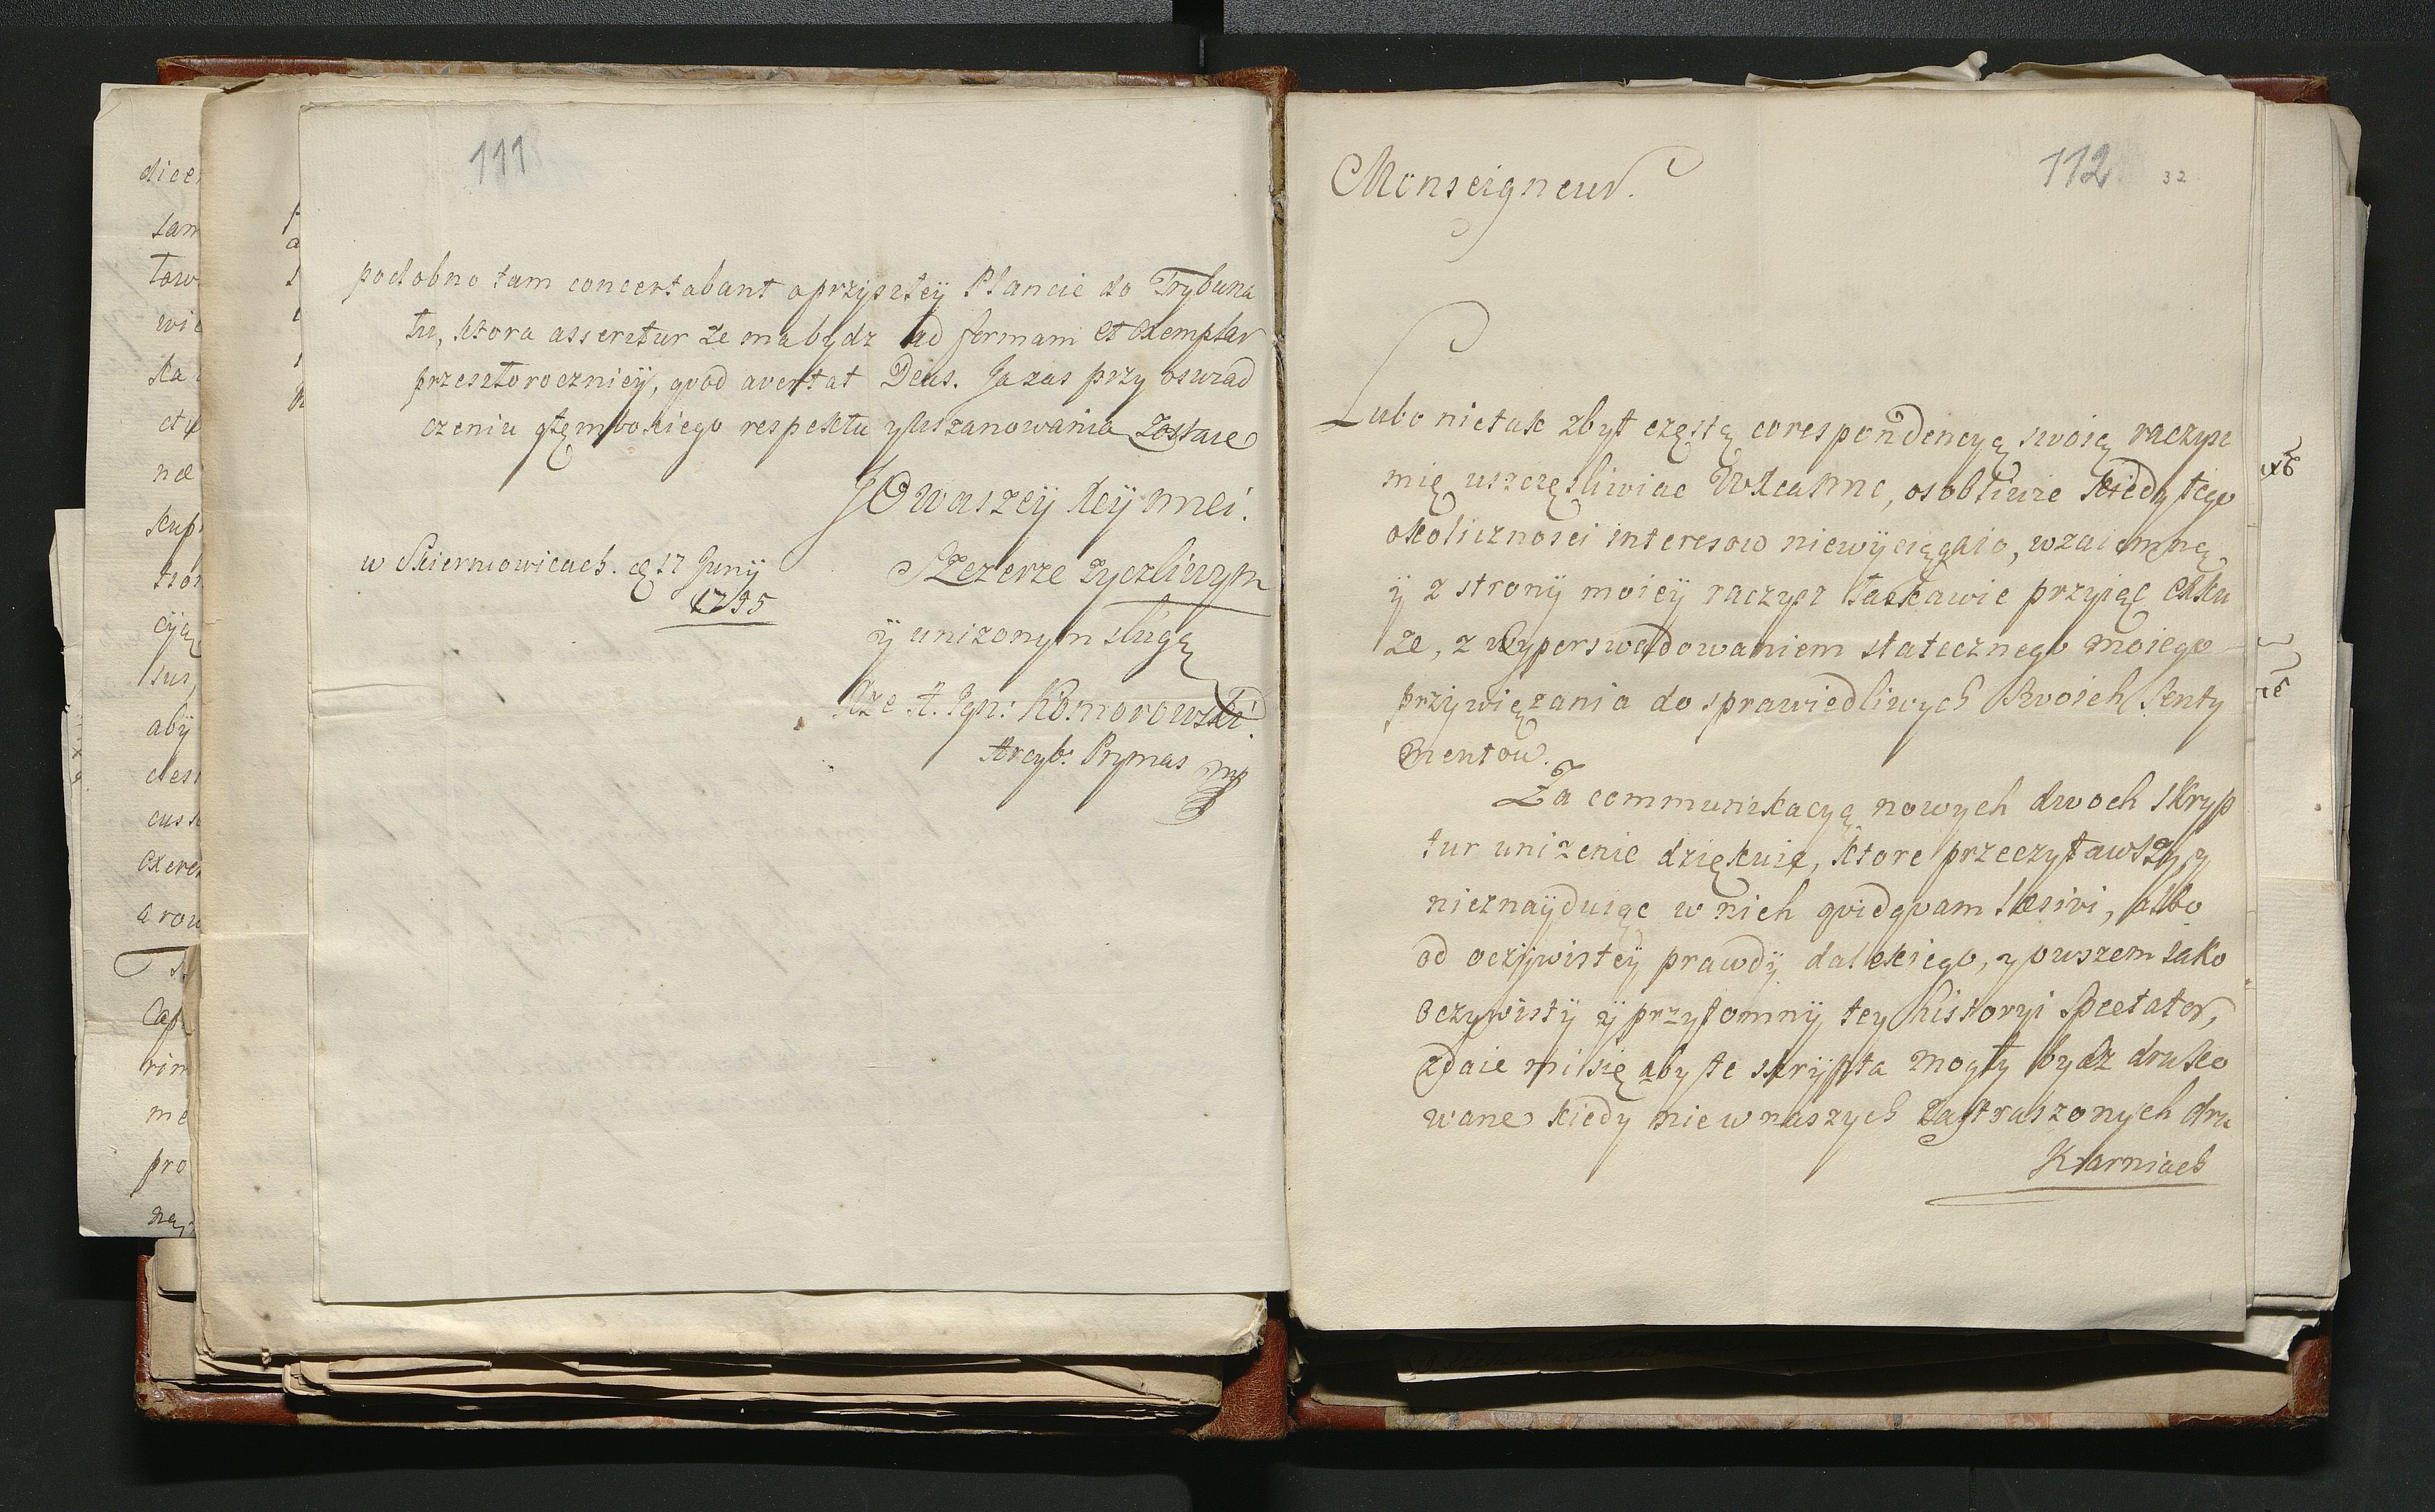 111
podobno tam concertabant o przyszłey Plancie do Trybuna
łu, ktora asseritur że ma bydz ad formam et exemplar
przeszłoroczniey, qvod avertat Deus. Ja zas przy oswiad
czeniu głęmbokiego respektu y uszanowania zostaie
JO Waszey Xcey mci.
w Skierniewicach. d 17 Junij
1755
Szczerze zyczliwym
ÿ unizonym sługą
Xże A. Ign: Komorowski
Arcyb: Prymas mp
112
32
Monseigneur.
Lubo nie tak zbyt częstą corespondencyą swoią raczysz
mię uszczęsliwiac WXcaMnc, osobliwie kiedy tego
okolicznosci interesow niewyciągaio, wzaiemną
ÿ z strony moiey raczysz łaskawie przyiąc exku
ze, z wyperswadowaniem statecznego moiego
przywięzania do sprawiedliwych Swoich Senty
mentow.
Za communikacyą nowych dwoch skryp
tur unizenie dziękuię, ktore przeczytawszy, y
nieznayduiąc w nich qvidqvam læsivi, albo
od oczywistey prawdy dalekiego, y owszem iako
oczywisty ÿ przytomny tey historyi Spectator,
zdaie mi się aby te skrypta mogły bydz druko
wane kiedy nie w naszych zastraszonych dru
karniach
dice
tam
wie
ka
næ
kup
cyą
sus,
aby
exer
a row
Cap
rim
me
pro